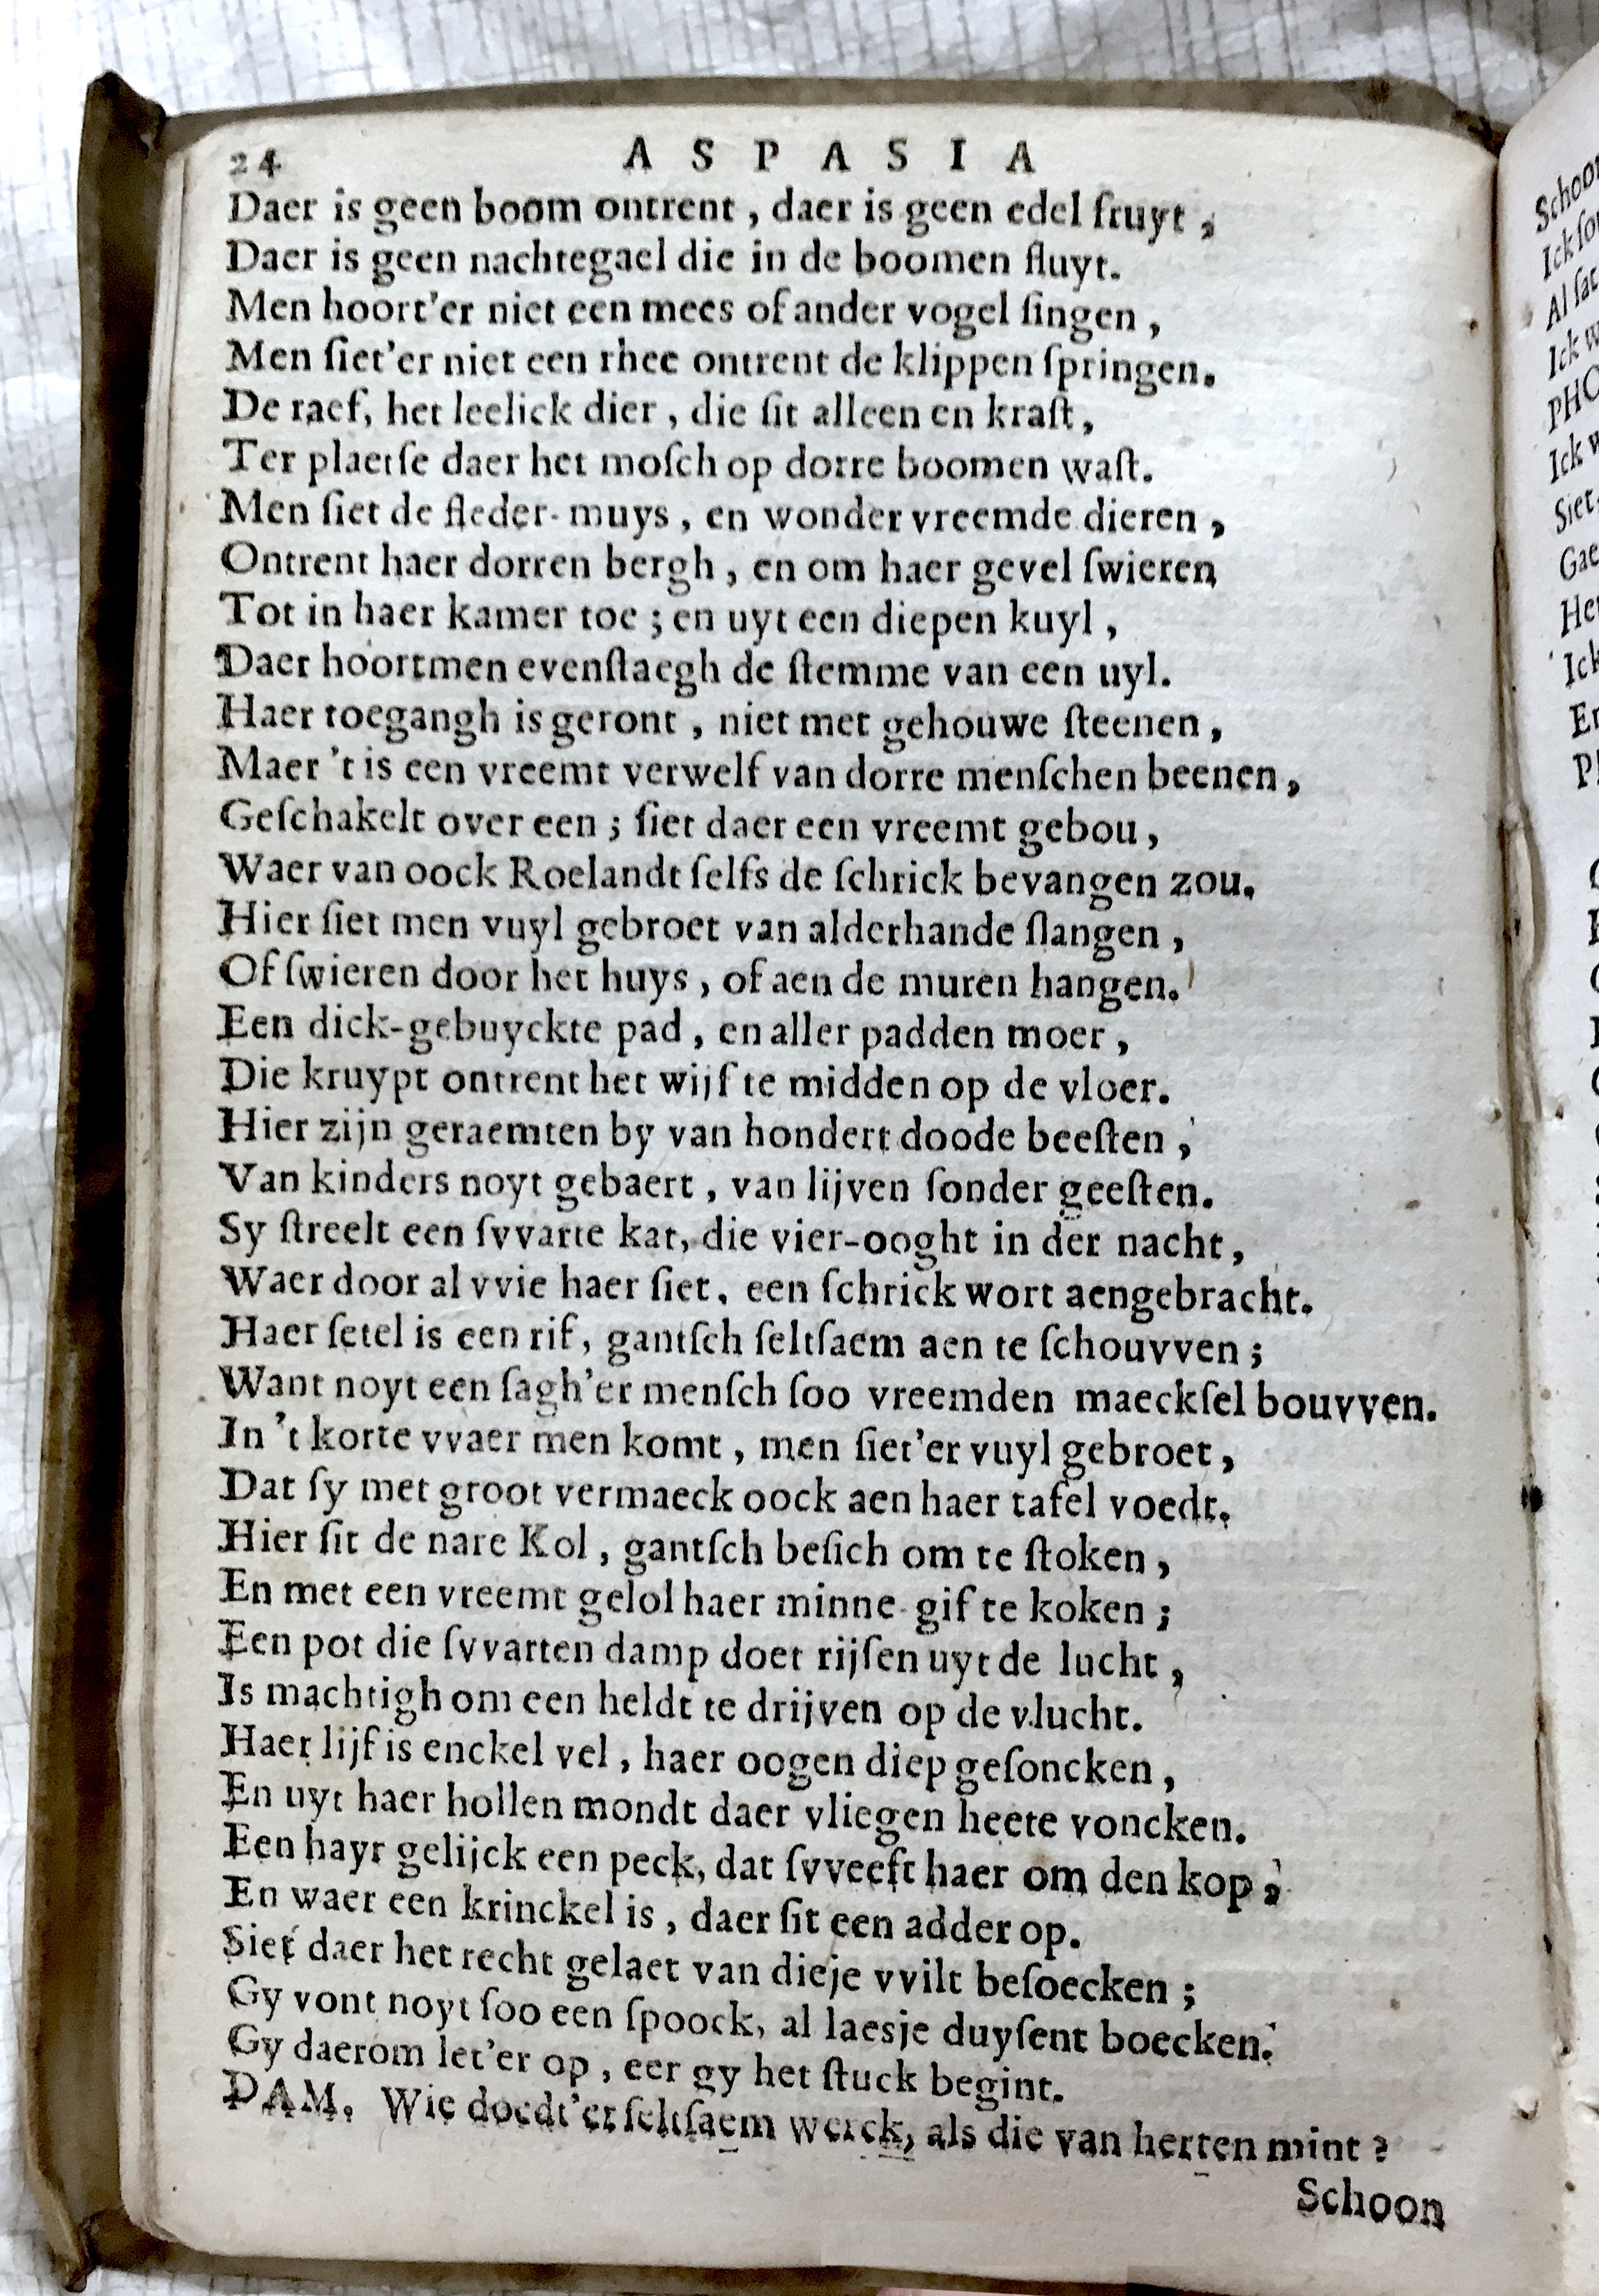 24 ASPASIA
Daer is geen boom ontrent, daer is geen edel fruyt,
Daer is geen nachtegael die in de boomen fluyt.
Men hoort'er niet een mees of ander vogel ſingen,
Men ſiet'er niet een rhee ontrent de klippen ſpringen.
De raef, het leelick dier, die ſit alleen en kraſt,
Ter plaetſe daer het moſch op dorre boomen waſt.
Men ſiet de fleder-muys, en wonder vreemde dieren,
Ontrent haer dorren bergh, en om haer gevel ſwieren
Tot in haer kamer toe; en uyt een diepen kuyl,
Daer hoortmen evenſtaegh de ſtemme van een uyl.
Haer toegangh is geront, niet met gehouwe ſteenen,
Maer 't is een vreemt verwelf van dorre menſchen beenen,
Geſchakelt over een; ſiet daer een vreemt gebou,
Waer van oock Roelandt ſelfs de ſchrick bevangen zou.
Hier ſiet men vuyl gebroet van alderhande ſlangen,
Of ſwieren door het huys, of aen de muren hangen.
Een dick-gebuyckte pad, en aller padden moer,
Die kruypt ontrent het wijf te midden op de vloer.
Hier zijn geraemten by van hondert doode beeſten,
Van kinders noyt gebaert, van lijven ſonder geeſten.
Sy ſtreelt een ſvvarte kat, die vier-ooght in der nacht,
Waer door al vvie haer ſiet, een ſchrick wort aengebracht.
Haer ſetel is een rif, gantſch ſeltſaem aen te ſchouvven;
Want noyt een ſagh'er menſch ſoo vreemden maeckſel bouvven.
In 't korte vvaer men komt, men ſiet'er vuyl gebroet,
Dat ſy met groot vermaeck oock aen haer tafel voedt.
Hier ſit de nare Kol, gantſch beſich om te ſtoken,
En met een vreemt gelol haer minne-gif te koken;
Een pot die ſvvarten damp doet rijſen uyt de lucht,
Is machtigh om een heldt te drijven op de vlucht.
Haer lijf is enckel vel, haer oogen diep geſoncken,
En uyt haer hollen mondt daer vliegen heete voncken.
Een hayr gelijck een peck, dat ſvveeft haer om den kop,
En waer een krinckel is, daer ſit een adder op.
Siet daer het recht gelaet van dieje vvilt beſoecken;
Gy vont noyt ſoo een ſpoock, al laesje duyſent boecken.
Gy daerom let'er op, eer gy het ſtuck begint.
DAM. Wie doedt'er ſeltſaem werck, als die van herten mint?
Schoon